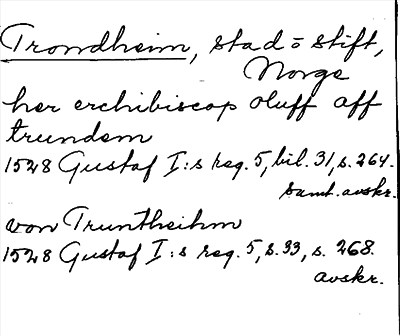 Trondheim, stad o stift,
Norge
her erchibiscop oluff aff
trundem
1528 Gustaf I:s reg. 5, bil. 31, s. 264.
samt. avskr.
von Truntheihm
1528 Gustaf I:s reg. 5, s. 93, s. 268.
avskr.